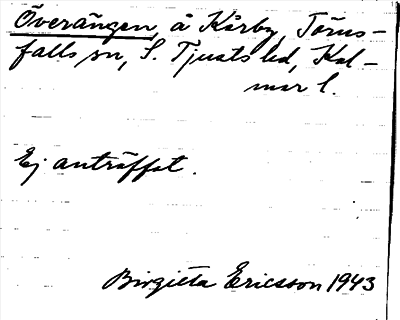 Överängen, å Kårby, Törns-
falls sn, S. Tjusts hd, Kal-
mar l.
Ej anträffat.
Birgitta Ericsson 1943